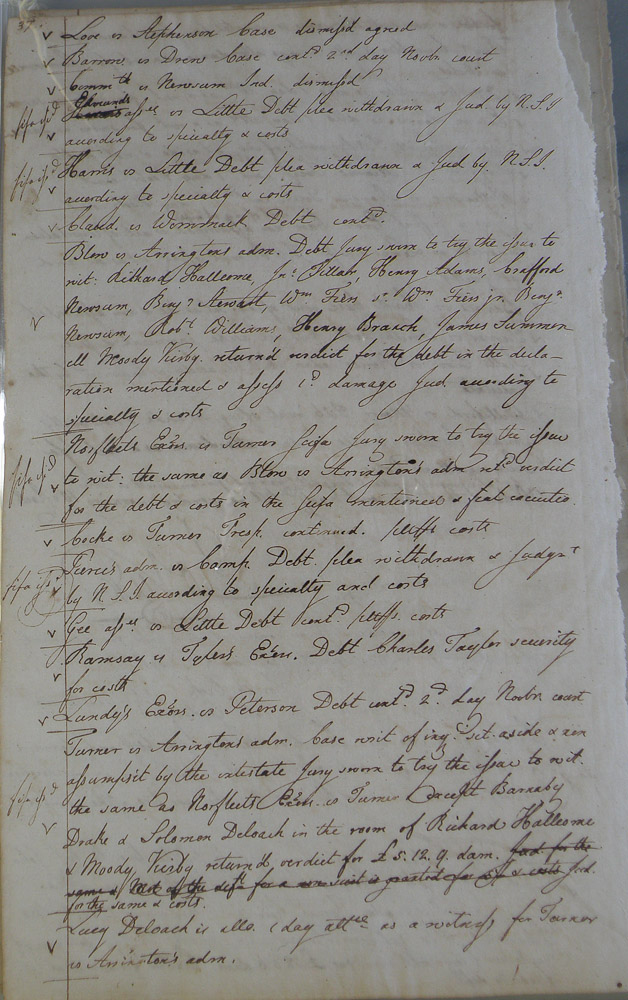 37
Love vs Stephenson Case dismissd agreed
Barrow vs Drew Case contd. 2nd day Novbr. court
Commth. vs Newsum Ind. dismissd
Edmunds
assee vs Little Debt plea withdrawn & Jud. by N.S.I
according to specialty & costs
fifa issd
Harris vs Little Debt plea withdrawn & Jud by. N.S.I.
fifa issd
according to specialty & costs
Claud. vs Wommack Debt contd.
Blow vs Arrington's adm. Debt Jury sworn to try the issue to
wit: Richard Halleome, Jno. Pillar, Henry Adams, Crafford
Newsum, Benj. Stewart, Wm Fiers sr. Wm Fiers jr. Benja.
Newsum, Robt. Williams, Henry Branch, James Summer
ell Moody Kirby. returnd verdict for the debt in the decla-
ration mentioned & assess 1d. damage Jud. according to
specialty & costs
Norfleets Exors. vs Turner Scifa Jury sworn to try the issue
fifa issd
to wit: the same as Blow vs Arrington's adm retd. verdict
for the debt & costs in the Scifa mentioned & fiat executio.
Cocke vs Turner Tresp. continued. pltffs costs
Pierce's adm. vs Camp. Debt. plea withdrawn & Judgmt
fifa issd
by N.S.I according to specialty and costs
Gee assee vs Little Debt contd pltffs. costs
Ramsay vs Tyler's Exors. Debt Charles Taylor security
for costs
Lundy's Exors. vs Peterson Debt contd. 2d. day Novbr. court
Turner vs Arringtons adm. Case writ of inqy. set aside & non
assumpsit by the intestate Jury sworn to try the issue to wit.
fifa issd
the same as Norfleets Exors. vs Turner Except Barnaby
Drake & Solomon Deloach in the room of Richard Halleome
& Moody Kirby returnd verdict for £5.12.9. dam. Jud for the
same & Mot of the deft for a new suit is granted for & costs Jud.
for the same & costs.
Lucy Deloach is allo. 1 day attce as a witness for Turner
vs Arrington's adm.